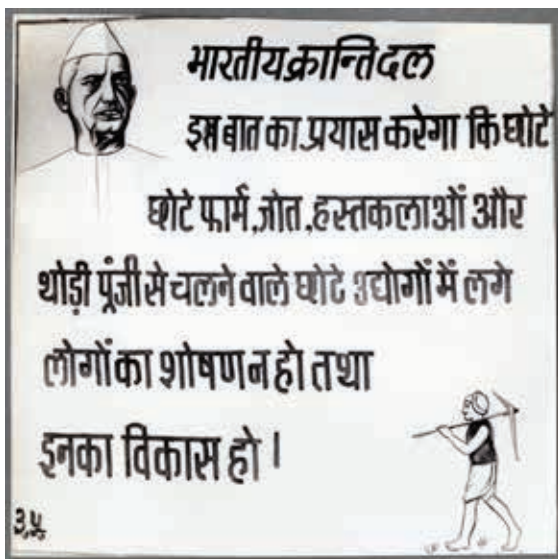 भारतीय क्रान्ति दल
इस बात का प्रयास करेगा कि छोटे
छोटे फार्म, जोत, हस्तकलाओं और
थोड़ी पूंजी से चलने वाले छोटे उद्योगों में लगे
लोगों का शोषण न हो तथा
इनका विकास हो।